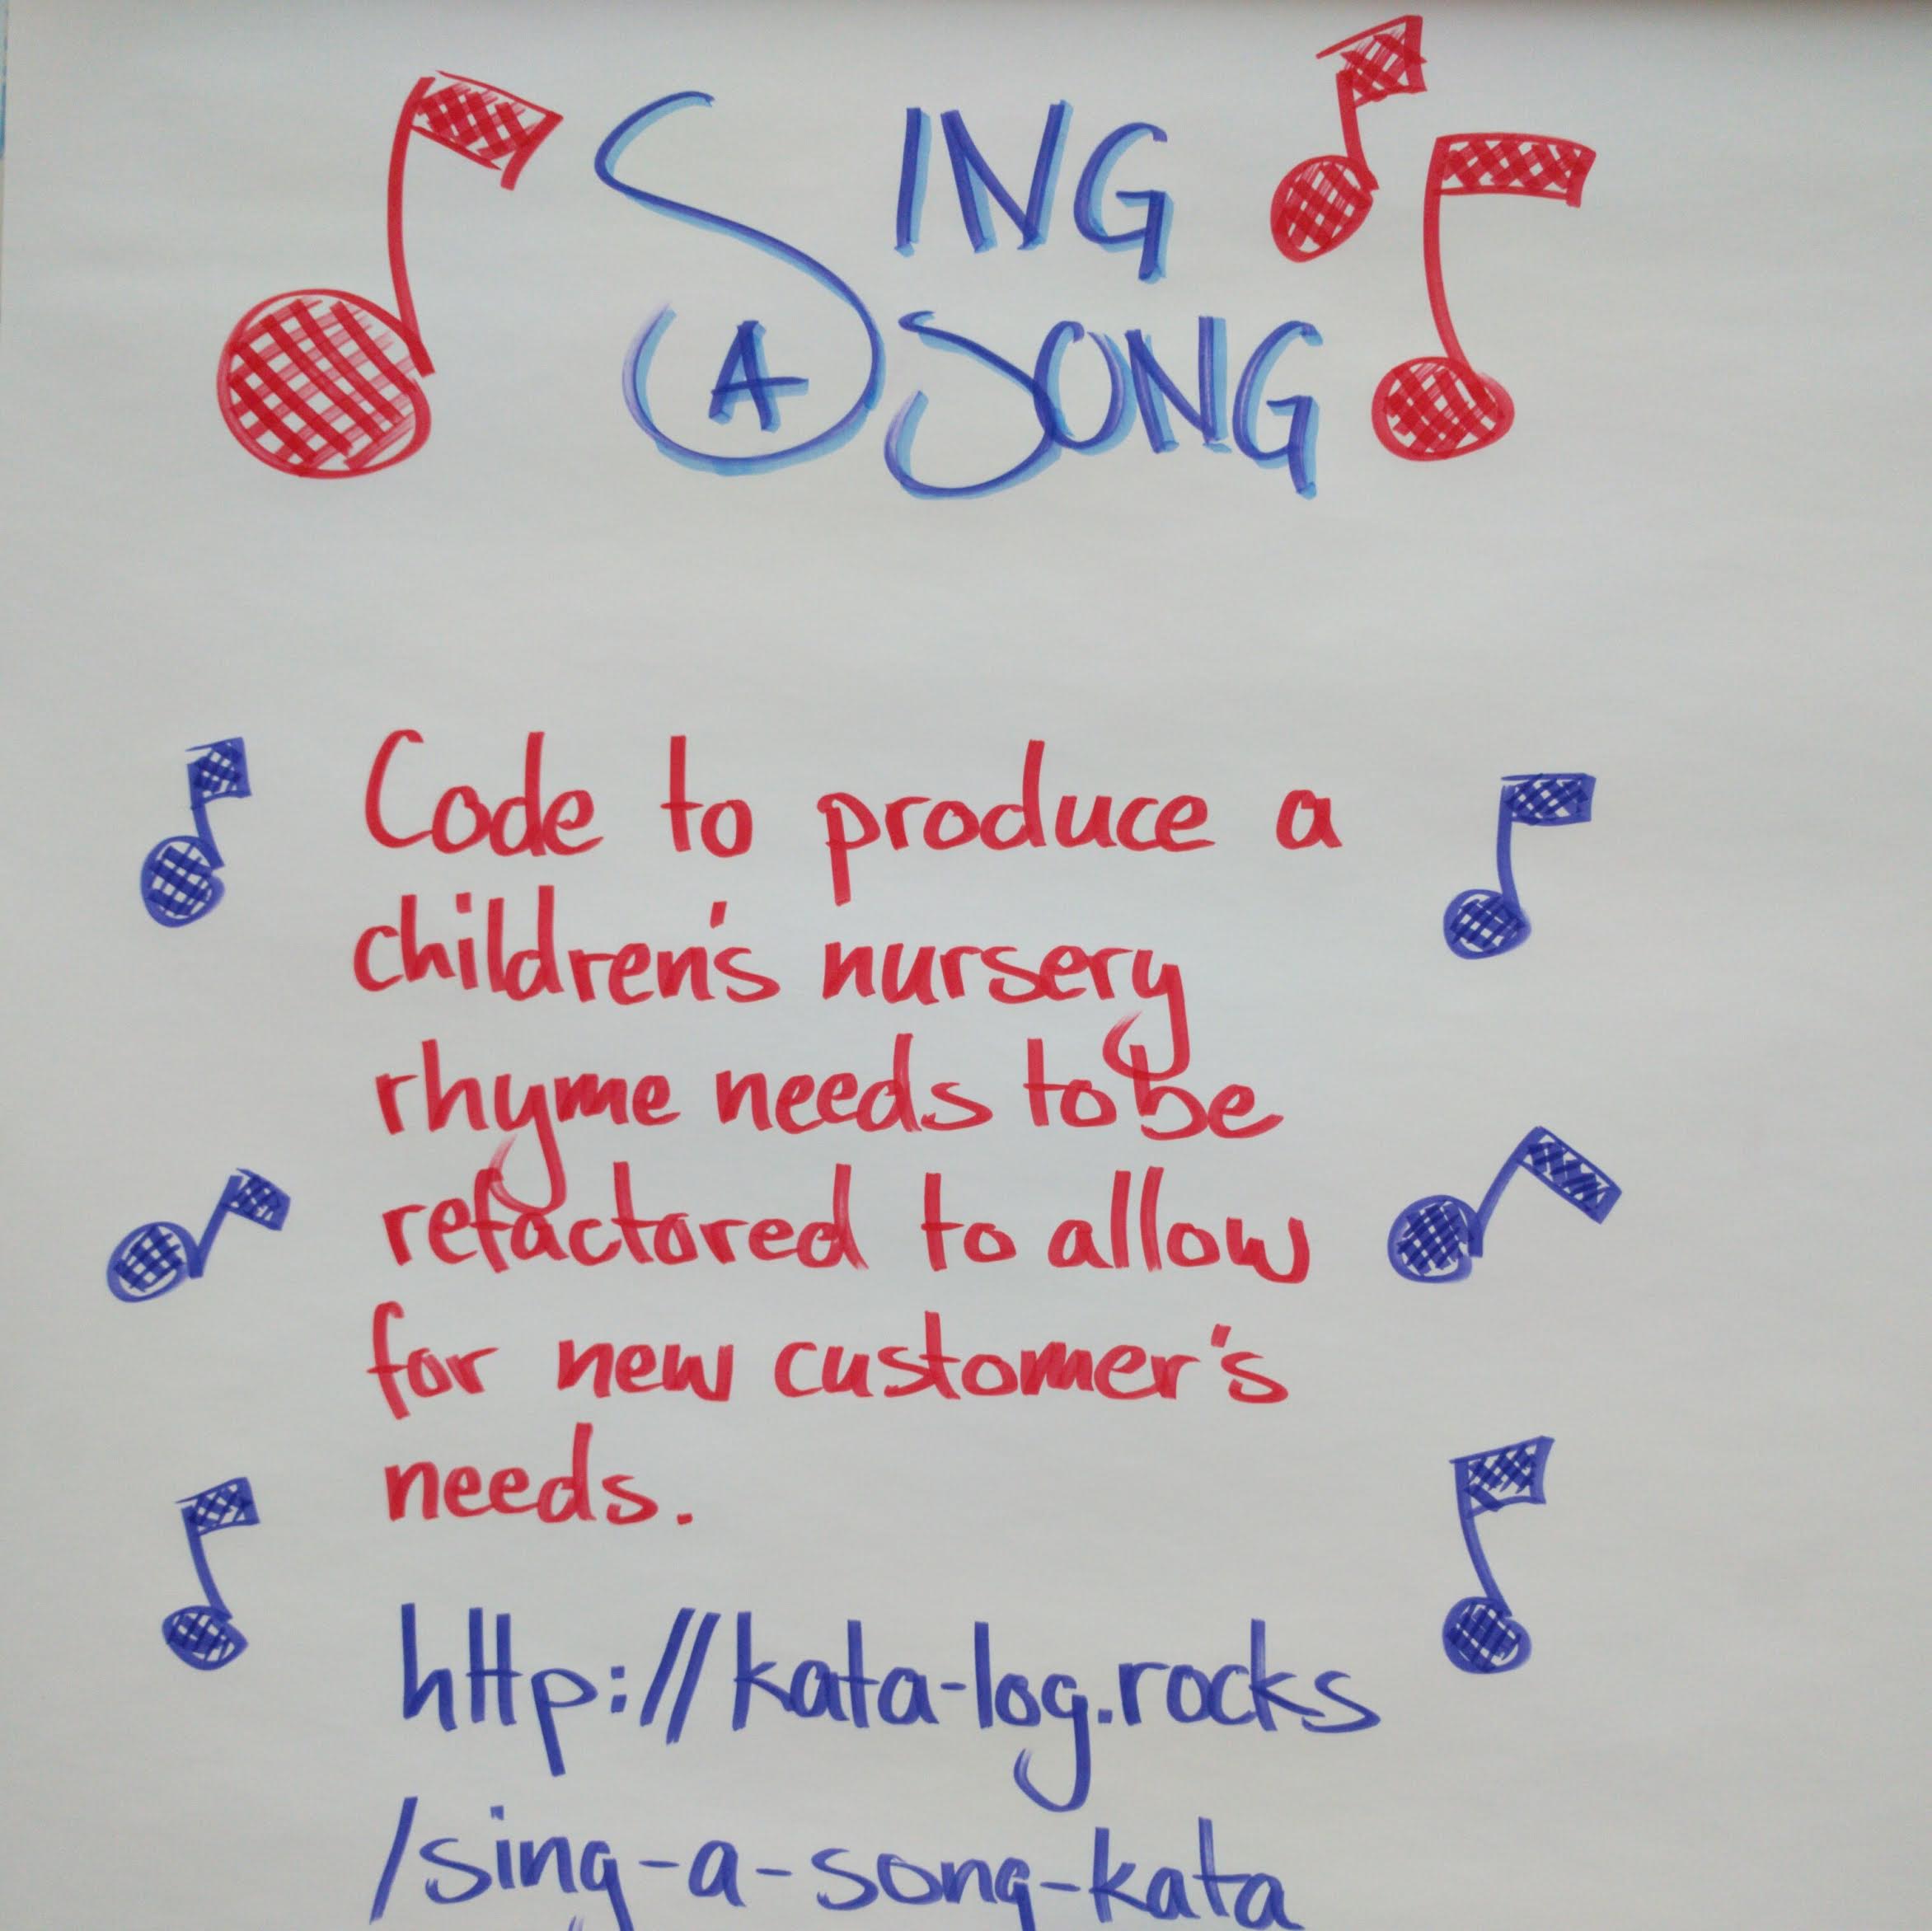 SING
A SONG
Code to produce a
children's nursery
rhyme needs to be
refactored to allow
for new customer's
needs.
http://kata-log.rocks
/sing-a-song-kata